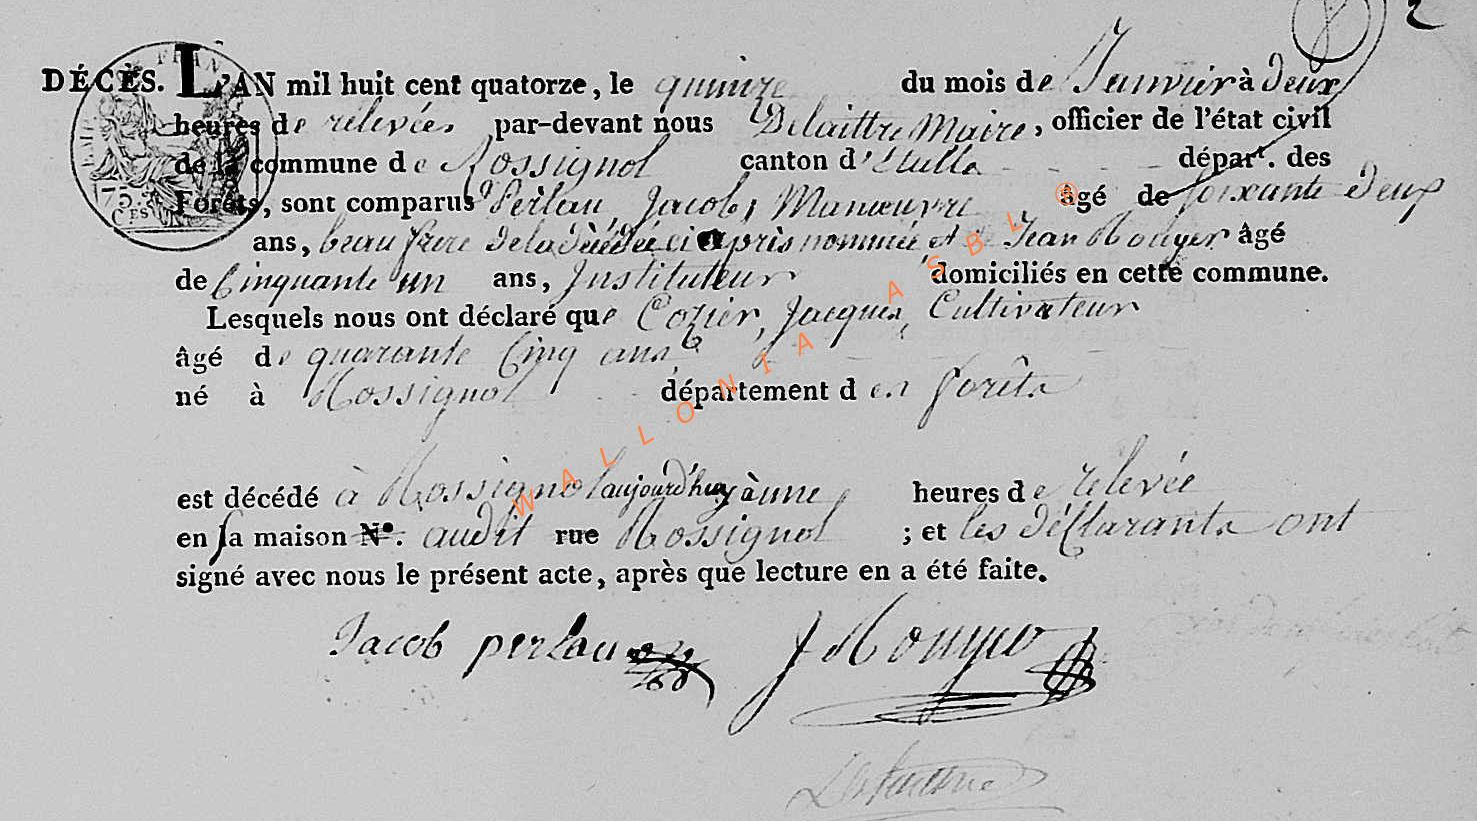 2
DÉCÈS. L'AN mil huit cent quatorze, le quinze du mois de Janvier à deux
heures de relevées par-devant nous Delaittre Maire, officier de l'état civil
de la commune de Rossignol canton d'Etalle départ. des
Forêts, sont comparus Perlau, Jacob, Manœuvre âgé de soixante deux
ans, beau frere de la décédée ci après nommée et Jean Rouyer âgé
de Cinquante un ans, Instituteur domiciliés en cette commune.
Lesquels nous ont déclaré que Cozier, Jacques, Cultivateur
âgé de quarante Cinq ans
né à Rossignol département des forêts
est décédé à Rossignol aujourd'huy à une heures de relevée
en sa maison N°. audit rue Rossignol ; et les déclarants ont
signé avec nous le présent acte, après que lecture en a été faite.
Jacob perlau J Rouyer
WALLONIA ASBL ®
75.
CES